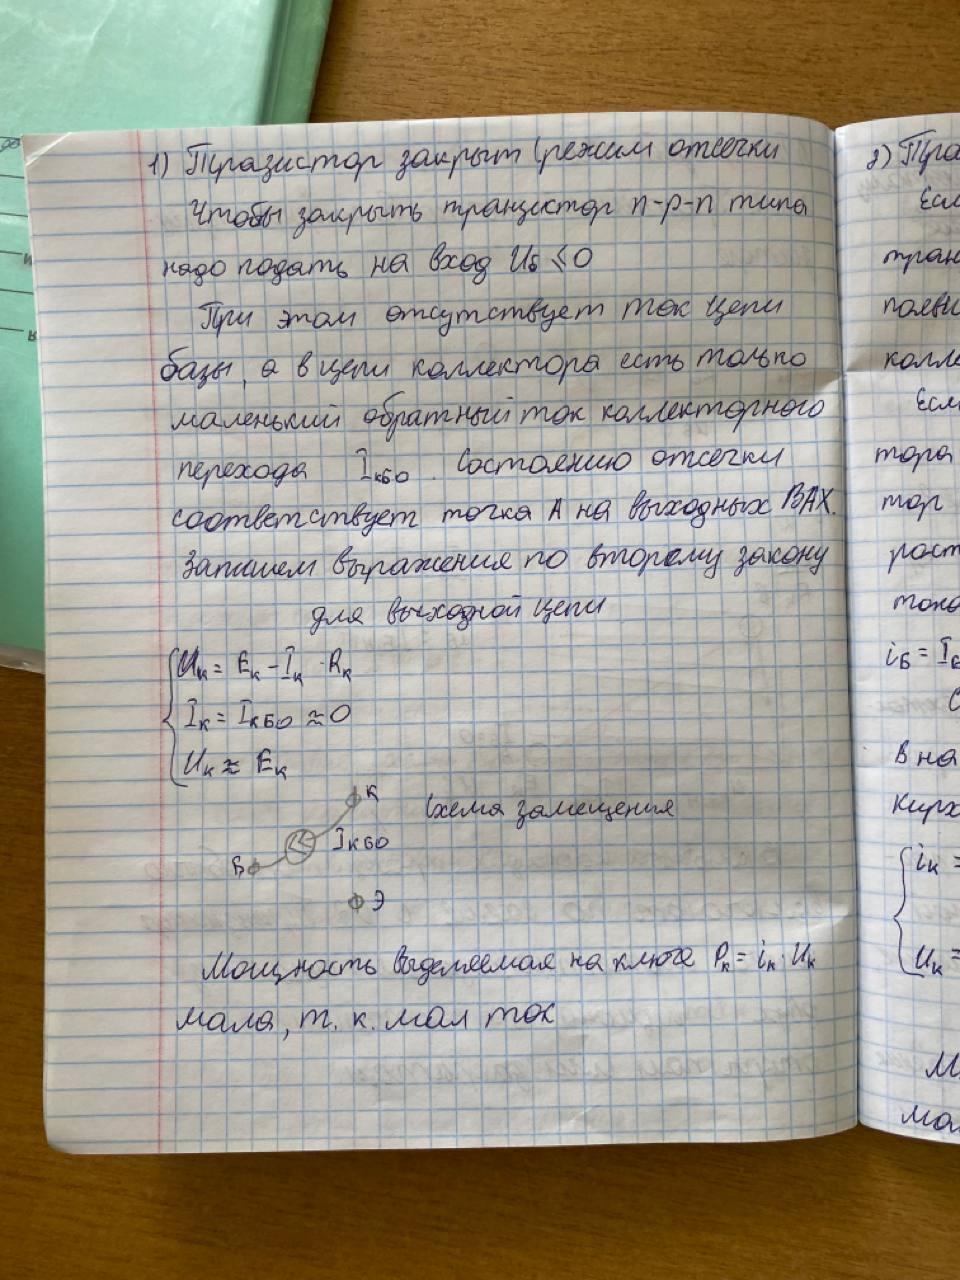 1) Тразистор закрыт (режим отсечки
Чтобы закрыть транзистор n-p-n типа
надо подать на вход Uб ≤ 0
При этом отсутствует ток цепи
базы, а в цепи коллектора есть только
маленький обратный ток коллекторного
перехода Iкбо. Состоянию отсечки
соответствует точка А на выходных ВАХ.
Запишем выражения по второму закону
для выходной цепи
Uк = Eк - Iк · Rк
Iк = Iкбо ≈ 0
Uк ≈ Eк
К
Схема замещения
Iкбо
Б
Э
Мощность выделяемая на ключе Pк = iк · Uк
мала, т. к. мал ток
2)
Есл
тран
колле
Есл
тора
тор
рост
тока
iб = Iб
В на
Кирх
iк =
Uк =
М
мал